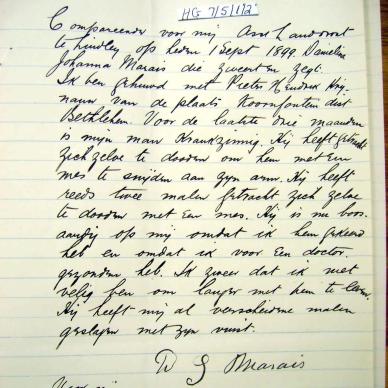 HG 7/5/1/2
Compareerde voor mij Asst Landdrost
te Lindley op heden 1 Sept 1899 Daneline
Johanna Marais die zweert en zegt.
Ik ben gehuwd met Pieter Hendrik
van de plaats Doornfontein dist
Bethlehem. Voor de laatste drie maanden
is mijn man krankzinnig. Hij heeft getracht
zich zelve te dooden om hem met een
mes te snijden aan zijn arm. Hij heeft
reeds twee malen getracht zich zelve
te dooden met een mes. Hij is nu boos
aardig op mij omdat ik hem gekeerd
heb en omdat ik voor een doctor
gezonden heb. Ik zweer dat ik niet
velig ben om langer met hem te leven.
Hij heeft mij al verscheidene malen
geslagen met zyn vuist.
D J Marais